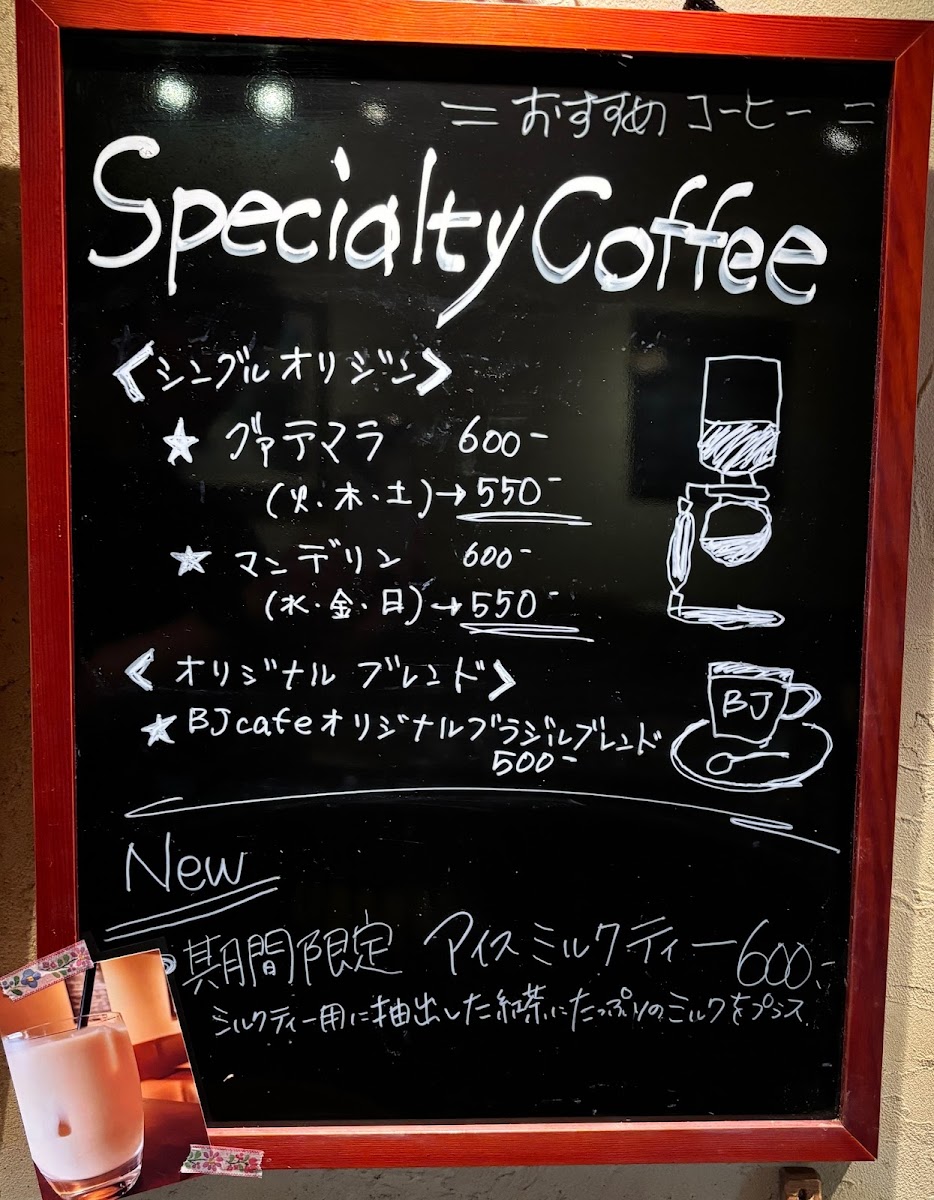 = おすすめ コーヒー =
Specialty Coffee
<シングルオリジン>
★ グァテマラ 600-
(火・木・土)→550-
★ マンデリン 600-
(水・金・日)→550-
<オリジナル ブレンド>
★BJcafeオリジナルブラジルブレンド
500-
BJ
New
期間限定 アイスミルクティー 600.-
ミルクティー用に抽出した紅茶にたっぷりのミルクをプラス